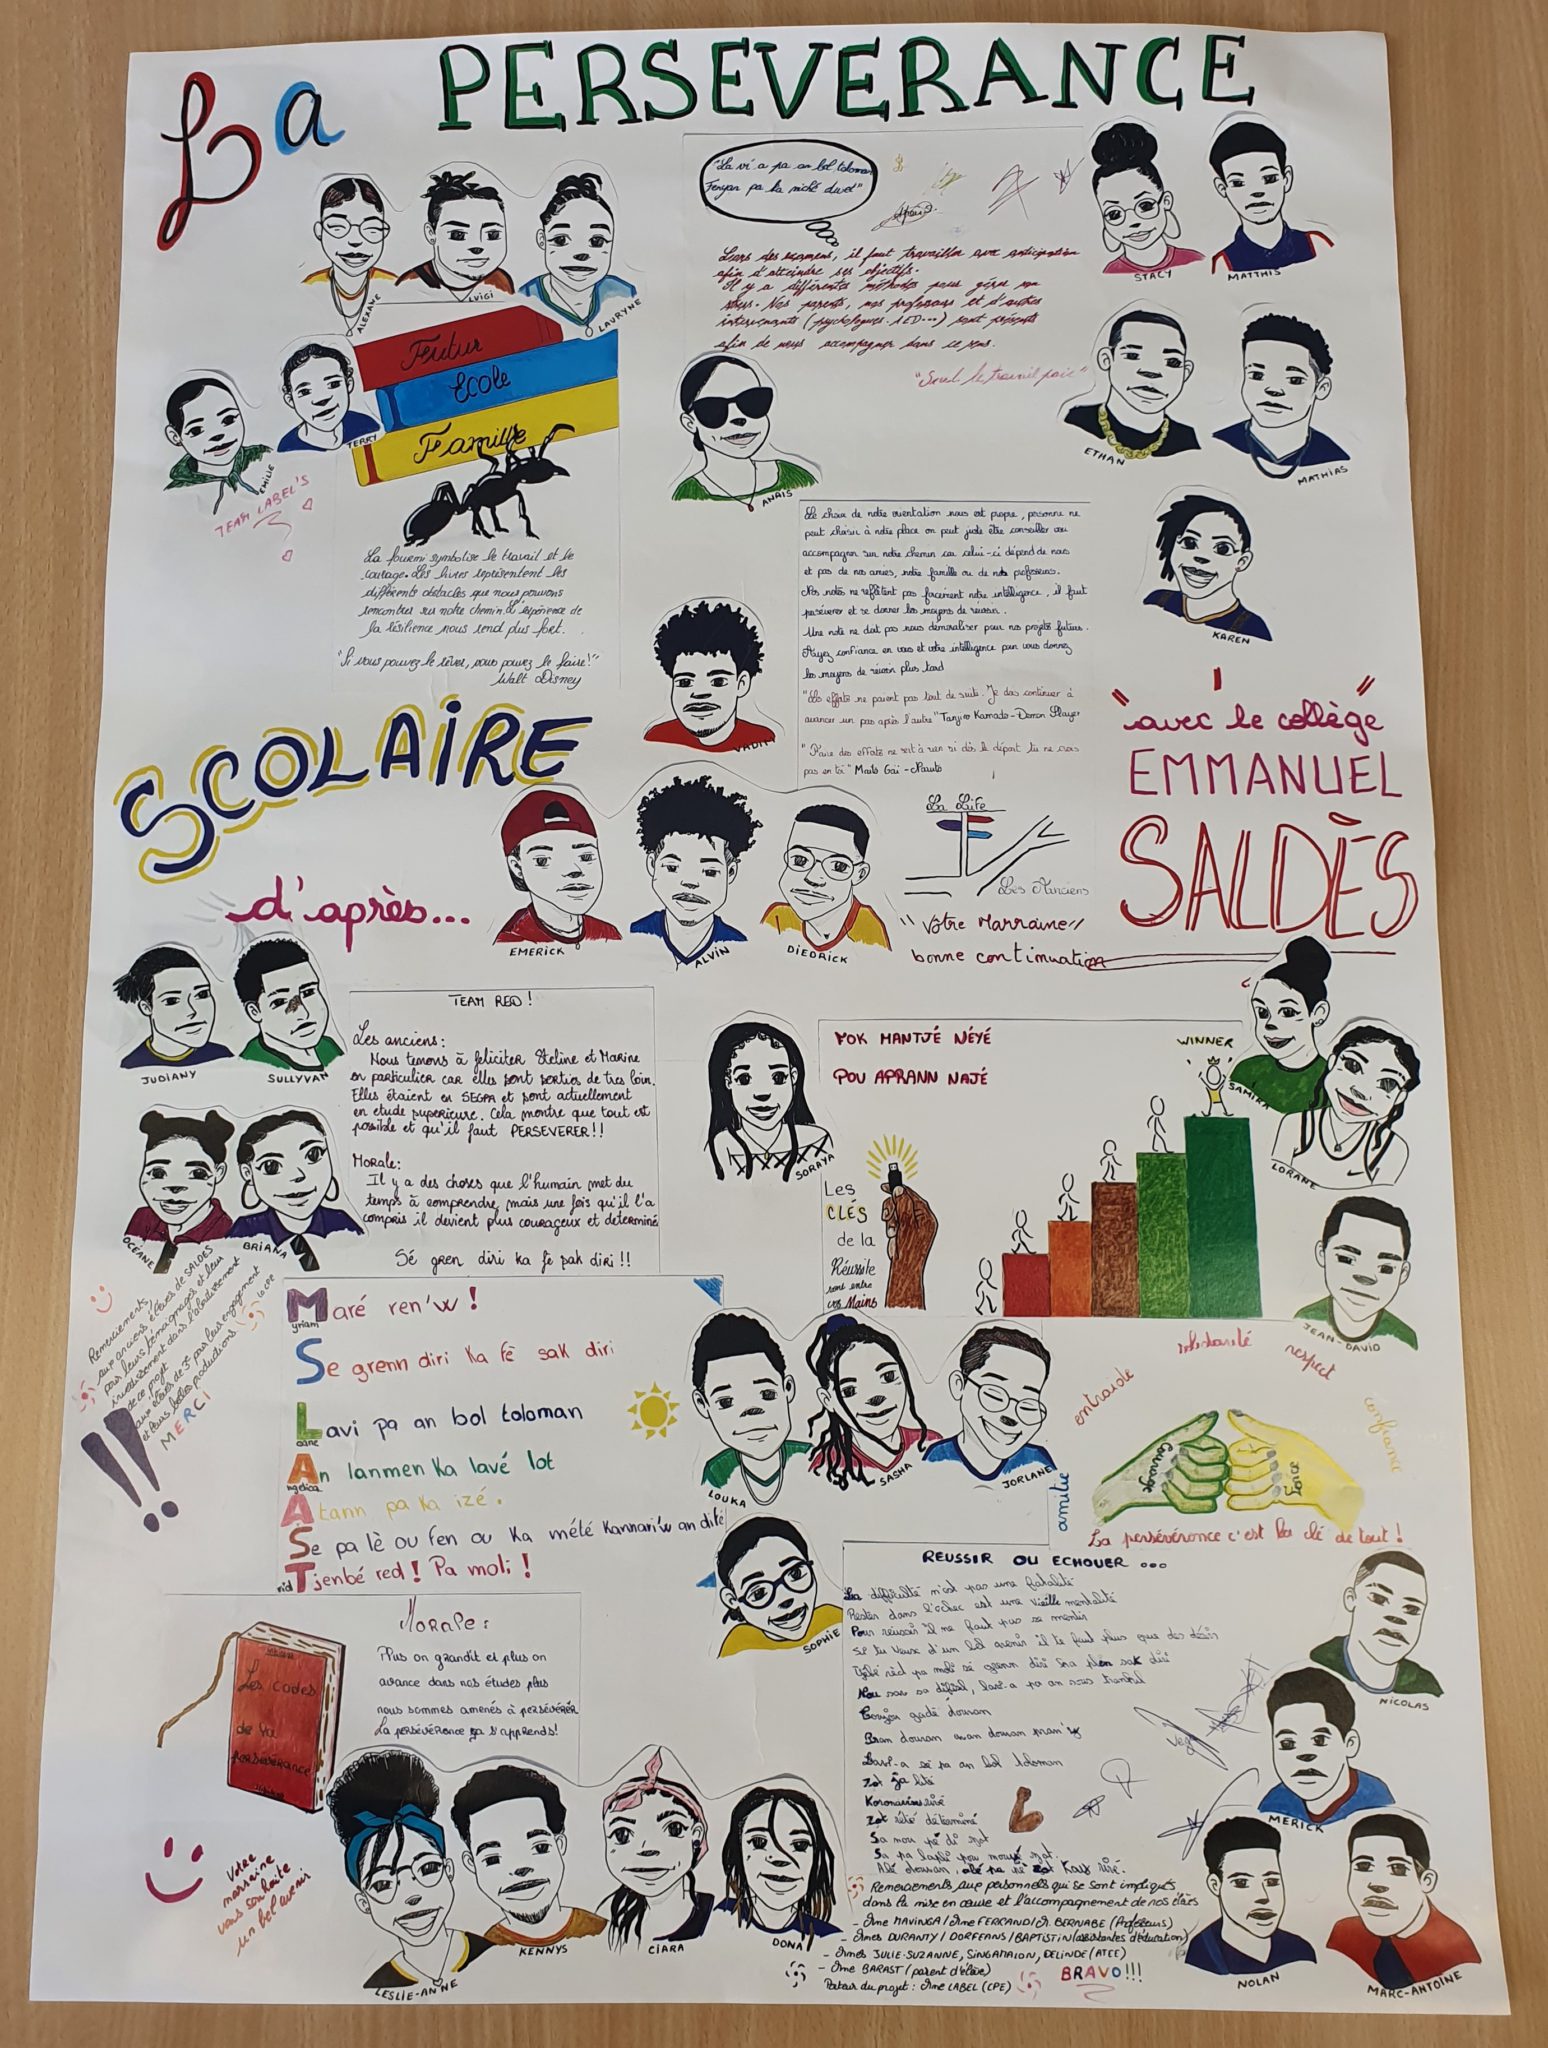 La PERSEVERANCE
ALEXANE
LUIGI
LAURYNE
TERRY
EMILIE
TEAM LABEL'S
Futur
Ecole
Famille
La fourmi symbolise le travail et le
courage. Les livres représentent les
différents obstacles que nous pouvons
rencontrer sur notre chemin. L'expérience de
la résilience nous rend plus fort.
"Si vous pouvez le rêver, vous pouvez le faire!"
Walt Disney
"La vi a pa an bol toloman
Fenyan pa ka
Lors des examens, il faut travailler avec anticipation
afin d'atteindre ses objectifs.
Il y a différentes méthodes pour gérer son
stress. Nos parents, nos professeurs et d'autres
intervenants (psychologues. AED...) sont présents
afin de nous accompagner dans ce sens.
"Seul le travail paie"
STACY
MATTHIS
ETHAN
MATHIAS
ANAIS
KAREN
Le choix de notre orientation nous est propre, personne ne
peut choisir à notre place on peut juste être conseiller ou
accompagner sur notre chemin car celui-ci dépend de nous
et pas de nos amies, notre famille ou de nos professeurs.
Nos notes ne reflètent pas forcément notre intelligence, il faut
persévérer et se donner les moyens de réussir.
Une note ne doit pas nous démoraliser pour nos projets futurs.
Ayez confiance en vous et votre intelligence pour vous donnez
les moyens de réussir plus tard
"Les efforts ne paient pas tout de suite. Je dois continuer à
avancer un pas après l'autre" Tanjiro Kamado - Demon Slayer
"Faire des efforts ne sert à rien si dès le départ tu ne crois
pas en toi" Maito Gaï - Naruto
SCOLAIRE
d'après...
"avec le collège"
EMMANUEL
SALDÈS
EMERICK
ALVIN
DIEDRICK
La Life
Les Manciens
"Votre Marraine"
bonne continuation
JUDIANY
SULLYVAN
OCÉANE
BRIANA
TEAM RED!
Les anciens:
Nous tenons à feliciter Steline et Marine
en particulier car elles sont sorties de tres loin.
Elles étaient en SEGPA et sont actuellement
en etude superieure. Cela montre que tout est
possible et qu'il faut PERSEVERER!!
Morale:
Il y a des choses que l'humain met du
temps à comprendre, mais une fois qu'il l'a
compris il devient plus courageux et determiné
Sé gren diri ka fe pak diri!!
SORAYA
FOK MANTJÉ NÉYÉ
POU APRANN NAJÉ
WINNER
SAMIRA
LORANE
JEAN-DAVID
Les
CLÉS
de la
Réussite
sont entre
vos Mains
Remerciements
aux anciens élèves de SALDES
pour leurs témoignages et leur
investissement dans l'aboutissement
de ce projet
aux élèves de 3e pour leur engagement
et leurs belles productions
La CPE
MERCI
!!
Myriam Maré ren'w !
Se grenn diri ka fè sak diri
Lavi pa an bol toloman
An lanmen ka lavé lot
Atann pa ka izé.
Se pa lè ou fen ou ka mété kannari'w an difé
Tjenbé red! Pa moli!
LOUKA
SASHA
JORLANE
SOPHIE
entraide
solidarité
respect
confiance
amitié
Courage
Force
La persévérance c'est la clé de tout!
Les codes
de la
persévérance
MORALE:
Plus on grandit et plus on
avance dans nos études plus
nous sommes amenés à persévérer
La persévérance ça s'apprends!
REUSSIR OU ECHOUER ...
La difficulté n'est pas une fatalité
Rester dans l'échec est une vieille mentalité
Pour réussir il ne faut pas se mentir
Si tu veux d'un bel avenir il te faut plus que des désirs
Nou sav sa difisil, lavi-a pa an
Toujou gadé douvan
Lavi-a sé pa an bol toloman
zot ja lité
zot rété détèrminé
Votre
marraine
vous souhaite
un bel avenir
LESLIE-ANNE
KENNYS
CIARA
DONA
NICOLAS
MERICK
NOLAN
MARC-ANTOINE
Remerciements aux personnels qui se sont impliqués
dans la mise en oeuvre et l'accompagnement de nos élèves
- Mme MAVINGA / Mme FERRAND / M. BERNABE (Professeurs)
- Mmes DURANTY / DORFEANS / BAPTISTIN (assistantes d'éducation)
- Mmes JULIE-SUZANNE, SINGAMAION, DELINDE (ATEE)
- Mme BARAST (parent d'élève)
Porteur du projet: Mme LABEL (CPE)
BRAVO!!!